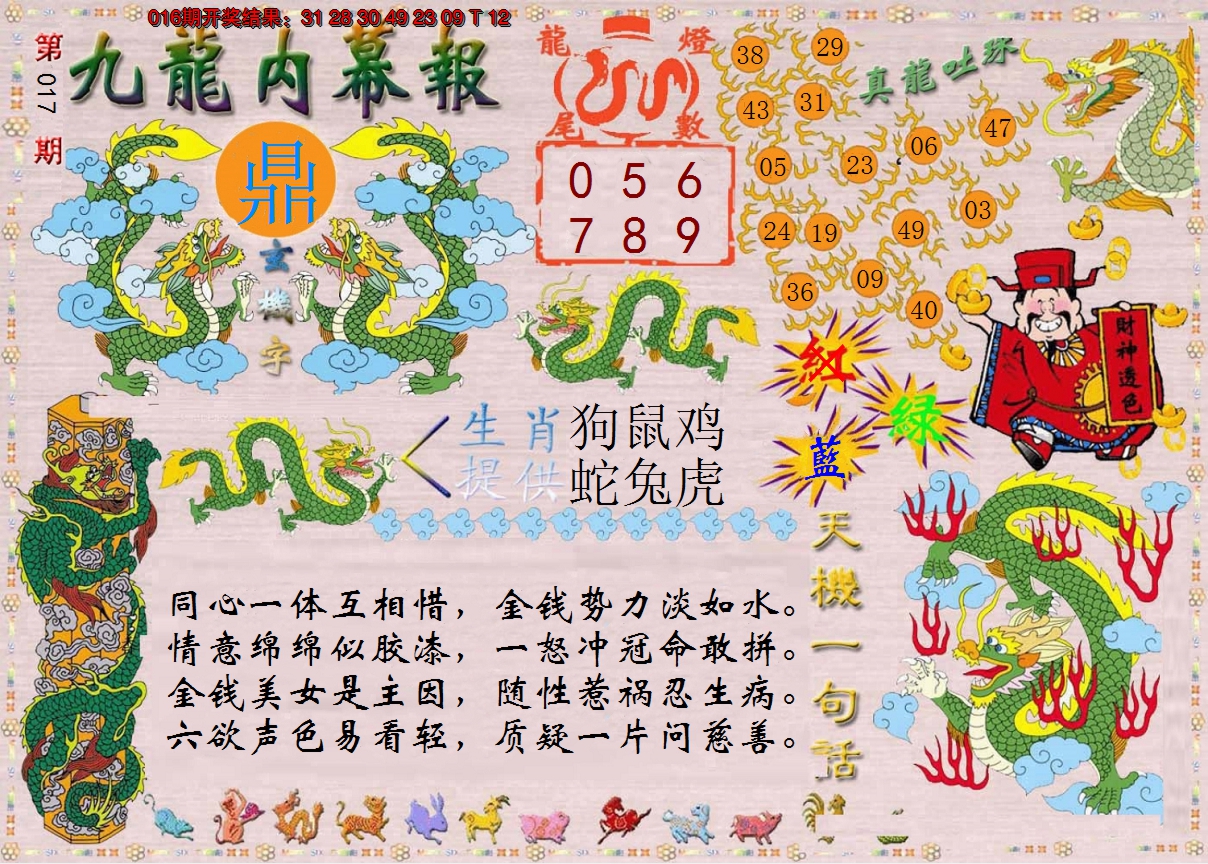 016期开奖结果：31 28 30 49 23 09 T 12
第017期
九龍内幕報
鼎
玄機字
龍燈
尾數
0 5 6
7 8 9
真龍吐珠
38 29
43 31
05 23 06 47
24 19 49 03
36 09 40
財神透色
紅
綠
藍
生肖 狗鼠鸡
提供 蛇兔虎
天機一句話
同心一体互相惜，金钱势力淡如水。
情意绵绵似胶漆，一怒冲冠命敢拼。
金钱美女是主因，随性惹祸忍生病。
六欲声色易看轻，质疑一片问慈善。